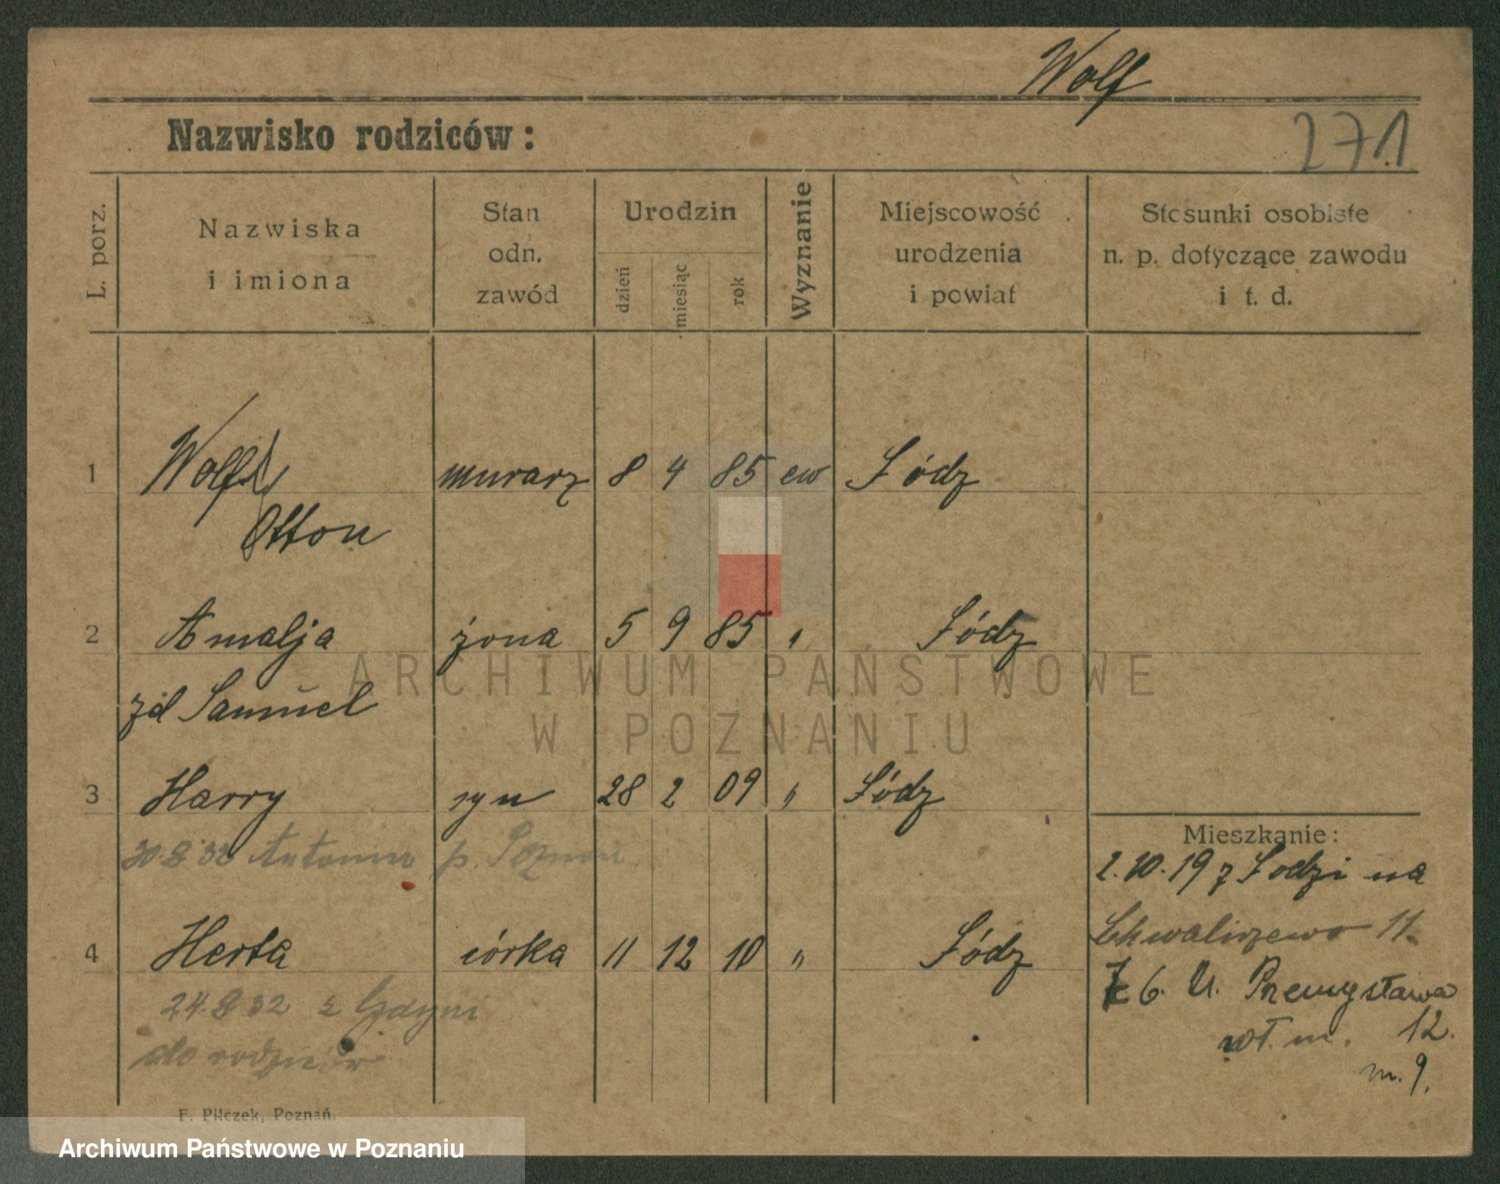 Wolf
Nazwisko rodziców:
271
L. porz.
Nazwiska
i imiona
Stan
odn.
zawód
Urodzin
dzień
miesiąc
rok
Wyznanie
Miejscowość
urodzenia
i powiat
Stosunki osobiste
n. p. dotyczące zawodu
i t. d.
1 Wolff murarz 8 4 85 ew Łódz
Otton
2 Amalja żona 5 9 85 " Łódz
zd Samuel
3 Harry syn 28 2 09 " Łódz
Mieszkanie:
30.8.32 Antonin p. Poznań
2.10.19 z Łodzi na
Chwaliszewo 11.
4 Herta córka 11 12 10 " Łódz
6. U. Przemysława
24.8.32 z Gdyni
wł. m. 12.
do rodziców
m. 9.
F. Pilczek, Poznań.
ARCHIWUM PAŃSTWOWE
W POZNANIU
Archiwum Państwowe w Poznaniu